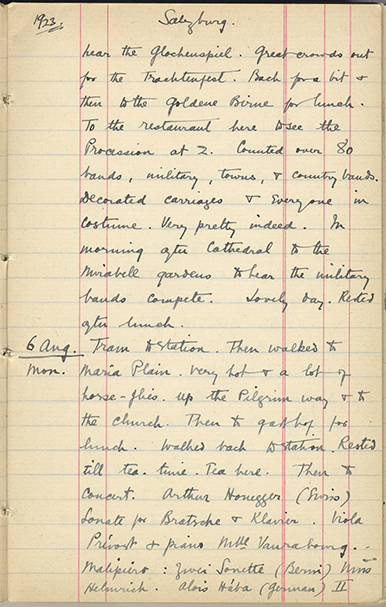 1923. Salzburg.
hear the Glockenspiel. Great crowds out
for the Trachtenfest. Back for a bit &
then to the Goldene Birne for lunch.
To the restaurant here to see the
Procession at 2. Counted over 80
bands, military, towns, & country bands.
Decorated carriages & everyone in
costume. Very pretty indeed. In
morning after Cathedral to the
Mirabell gardens to hear the military
bands compete. Lovely day. Rested
after lunch.
6 Aug. Tram to station. Then walked to
Mon. Maria Plain. Very hot & a lot of
horse-flies. Up the Pilgrim way & to
the church. Then to gasthof for
lunch. Walked back to station. Rested
till tea-time. Tea here. Then to
Concert. Arthur Honegger (Swiss)
Sonate for Bratsche & Klavier. Viola
Prévost & piano Mlle Vaurabourg. -
Malipiero: Zwei Sonette (Berni)
Helmrich. Alois Hába (German) II